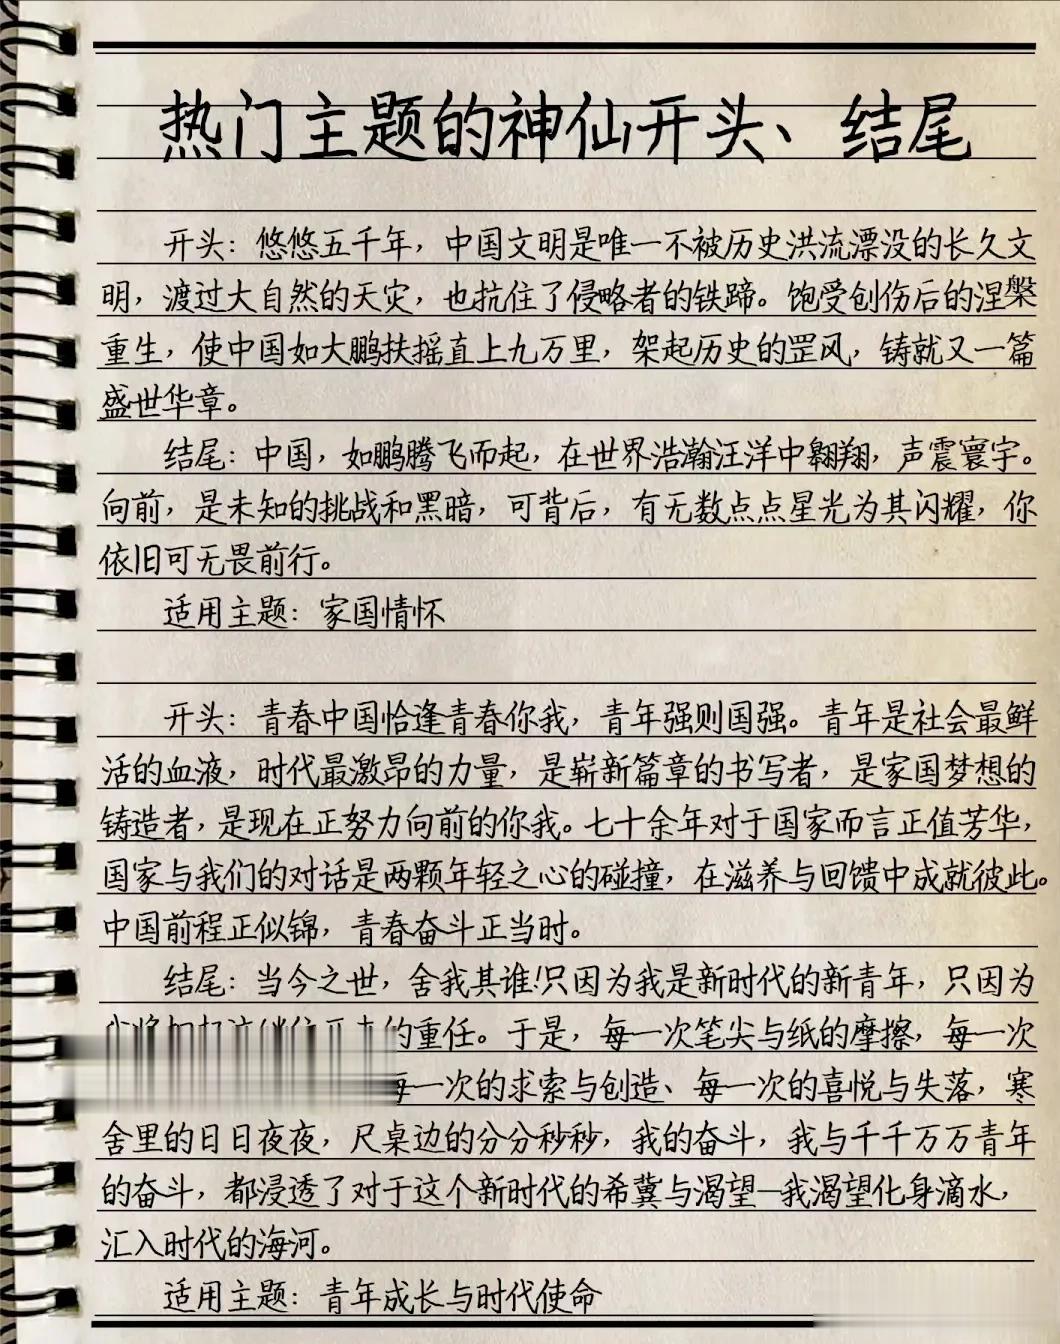 热门主题的神仙开头、结尾
开头：悠悠五千年，中国文明是唯一不被历史洪流漂没的长久文
明，渡过大自然的天灾，也抗住了侵略者的铁蹄。饱受创伤后的涅槃
重生，使中国如大鹏扶摇直上九万里，架起历史的罡风，铸就又一篇
盛世华章。
结尾：中国，如鹏腾飞而起，在世界浩瀚汪洋中翱翔，声震寰宇。
向前，是未知的挑战和黑暗，可背后，有无数点点星光为其闪耀，你
依旧可无畏前行。
适用主题：家国情怀
开头：青春中国恰逢青春你我，青年强则国强。青年是社会最鲜
活的血液，时代最激昂的力量，是崭新篇章的书写者，是家国梦想的
铸造者，是现在正努力向前的你我。七十余年对于国家而言正值芳华，
国家与我们的对话是两颗年轻之心的碰撞，在滋养与回馈中成就彼此。
中国前程正似锦，青春奋斗正当时。
结尾：当今之世，舍我其谁!只因为我是新时代的新青年，只因为
的重任。于是，每一次笔尖与纸的摩擦，每一次
每一次的求索与创造、每一次的喜悦与失落，寒
舍里的日日夜夜，尺桌边的分分秒秒，我的奋斗，我与千千万万青年
的奋斗，都浸透了对于这个新时代的希冀与渴望—我渴望化身滴水，
汇入时代的海河。
适用主题：青年成长与时代使命